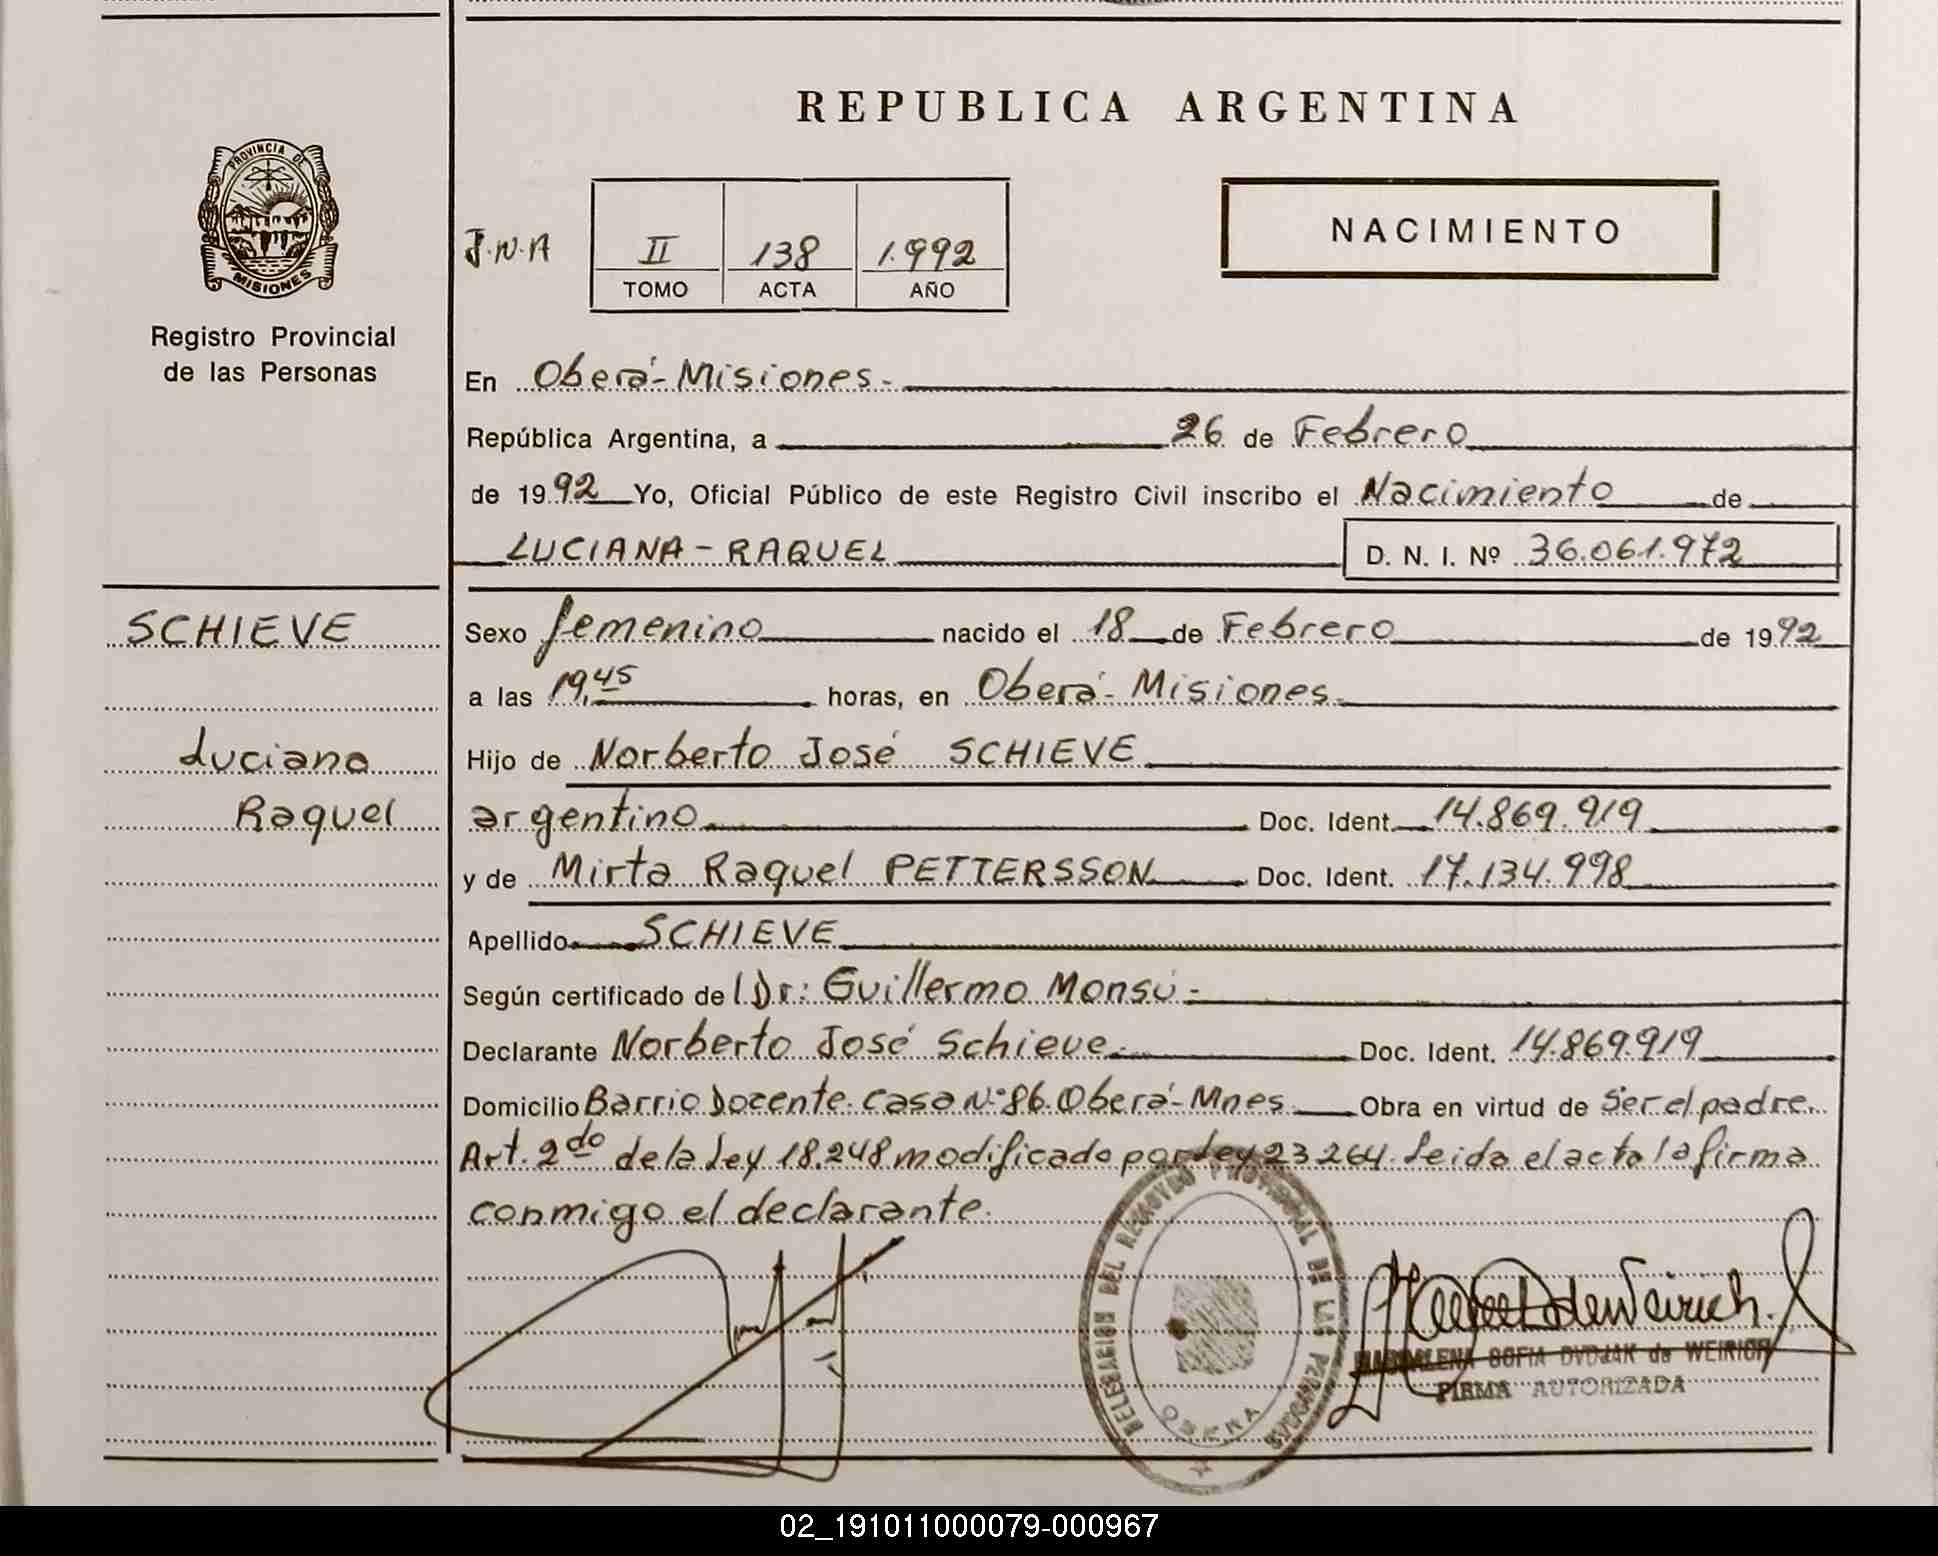 REPUBLICA ARGENTINA
PROVINCIA DE
MISIONES
Registro Provincial
de las Personas
J.N.A
II 138 1.992
TOMO ACTA AÑO
NACIMIENTO
En Oberá-Misiones-
República Argentina, a 26 de Febrero
de 1992 Yo, Oficial Público de este Registro Civil inscribo el Nacimiento de
LUCIANA-RAQUEL D. N. I. Nº 36.061.972
SCHIEVE
Luciana
Raquel
Sexo femenino nacido el 18 de Febrero de 1992
a las 19,45 horas, en Oberá-Misiones-
Hijo de Norberto José SCHIEVE
argentino Doc. Ident. 14.869.919
y de Mirta Raquel PETTERSSON Doc. Ident. 17.134.998
Apellido SCHIEVE
Según certificado del Dr: Guillermo Monsú-
Declarante Norberto José Schieve- Doc. Ident. 14.869.919
Domicilio Barrio Docente-casa N:º86.Oberá-Mnes Obra en virtud de Ser el padre.
Art. 2do de la Ley 18.248 modificado por Ley 23264. Leida el acta la firma
conmigo el declarante.
DELEGACION DEL REGISTRO PROVINCIAL DE LAS PERSONAS
OBERA
MAGDALENA SOFIA DVDJAK de WEIRICH
FIRMA AUTORIZADA
02_191011000079-000967